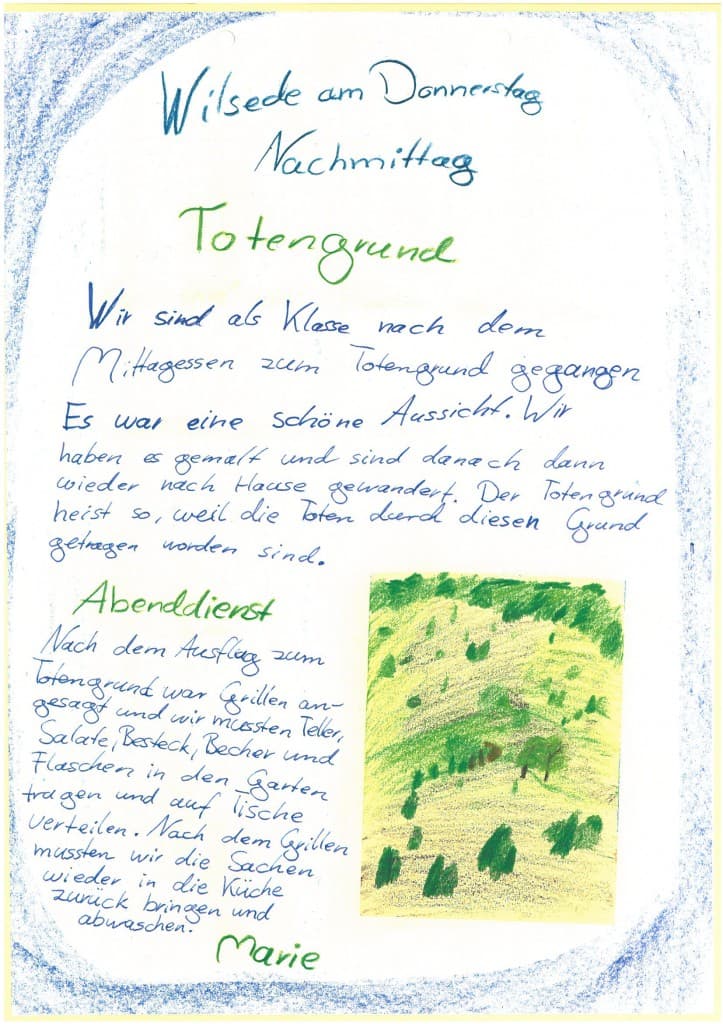 Wilsede am Donnerstag
Nachmittag
Totengrund
Wir sind als Klasse nach dem
Mittagessen zum Totengrund gegangen
Es war eine schöne Aussicht. Wir
haben es gemalt und sind danach dann
wieder nach Hause gewandert. Der Totengrund
heist so, weil die Toten durch diesen Grund
getragen worden sind.
Abenddienst
Nach dem Ausflug zum
Totengrund war Grillen an-
gesagt und wir mussten Teller,
Salate, Besteck, Becher und
Flaschen in den Garten
tragen und auf Tische
verteilen. Nach dem Grillen
mussten wir die Sachen
wieder in die Küche
zurück bringen und
abwaschen.
Marie